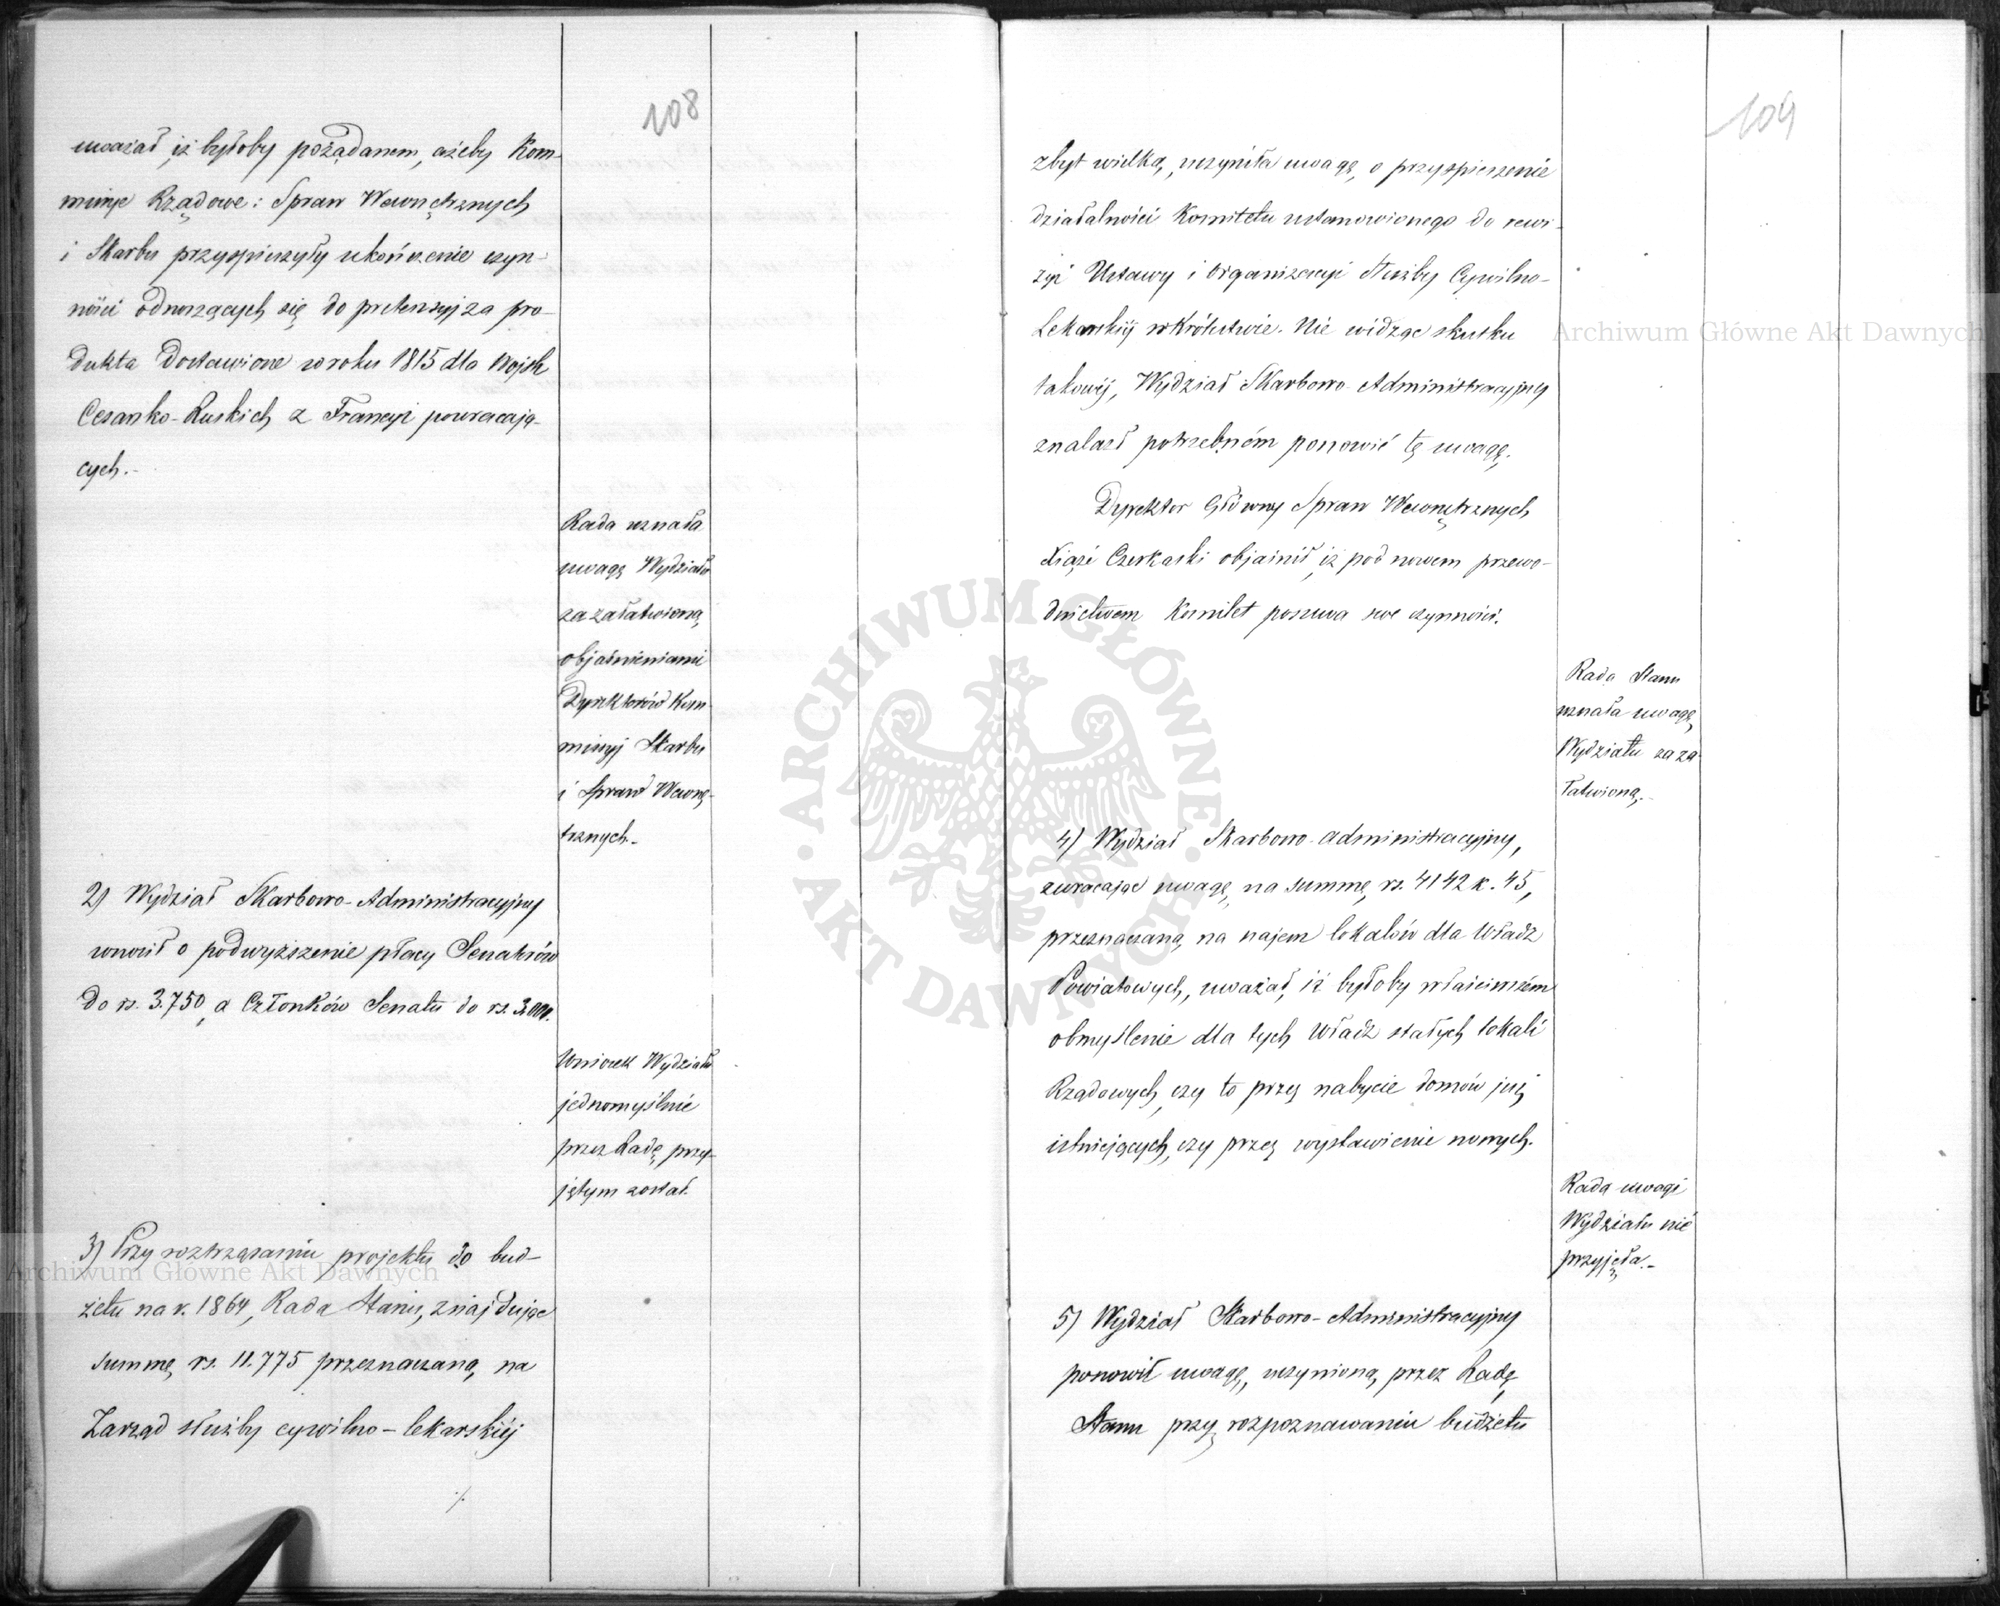 108
uważał, iż byłoby pożądanem, ażeby Kom-
missye Rządowe: Spraw Wewnętrznych
i Skarbu przyspieszyły ukończenie czyn-
ności odnoszących się do pretensyj za pro-
dukta dostawione w roku 1815 dla Wojsk
Cesarsko-Ruskich z Francyi powracają-
cych.-
Rada uznała
uwagę Wydziału
za załatwioną
objaśnieniami
Dyrektorów Kom-
missyj Skarbu
i Spraw Wewnę-
trznych.-
2) Wydział Skarbowo-Administracyjny
wnosił o podwyższenie płacy Senatorów
do rs. 3.750, a Członków Senatu do rs. 3.000.
Wniosek Wydziału
jednomyślnie
przez Radę przy-
jętym został.
3) Przy roztrząsaniu projektu do bud-
żetu na r. 1864, Rada Stanu, znajdując
summę rs. 11.775 przeznaczoną na
Zarząd służby cywilno-lekarskiéj
./.
109
zbyt wielką, uczyniła uwagę, o przyspieszenie
działalności Komitetu ustanowionego do rewi-
zyi Ustawy i organizacyi Służby Cywilno-
Lekarskiéj w Królestwie. Nie widząc skutku
takowéj, Wydział Skarbowo-Administracyjny
znalazł potrzebném ponowić tę uwagę.
Dyrektor Główny Spraw Wewnętrznych
Xiąże Czerkaski objaśnił, iż pod nowem przewo-
dnictwem Komitet posuwa swe czynności.
Rada Stanu
uznała uwagę
Wydziału za za-
łatwioną.-
4) Wydział Skarbowo-administracyjny,
zwracając uwagę na summę rs. 4142 k. 45,
przeznaczoną na najem lokalów dla Władz
Powiatowych, uważał, iż byłoby właściwszém
obmyślenie dla tych Władz stałych lokali
Rządowych, czy to przez nabycie domów już
istniejących, czy przez wystawienie nowych.
Rada uwagi
Wydziału nie
przyjęła.-
5) Wydział Skarbowo-Administracyjny
ponowił uwagę, uczynioną przez Radę
Stanu przy rozpoznawaniu budżetu
Archiwum Główne Akt Dawnych
Archiwum Główne Akt Dawnych
· ARCHIWUM GŁÓWNE · AKT DAWNYCH ·